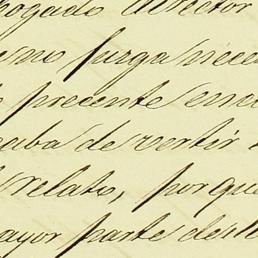 bogado director
mo juzga nece
presente em
caba de vertir
relato, porque
ayor parte de